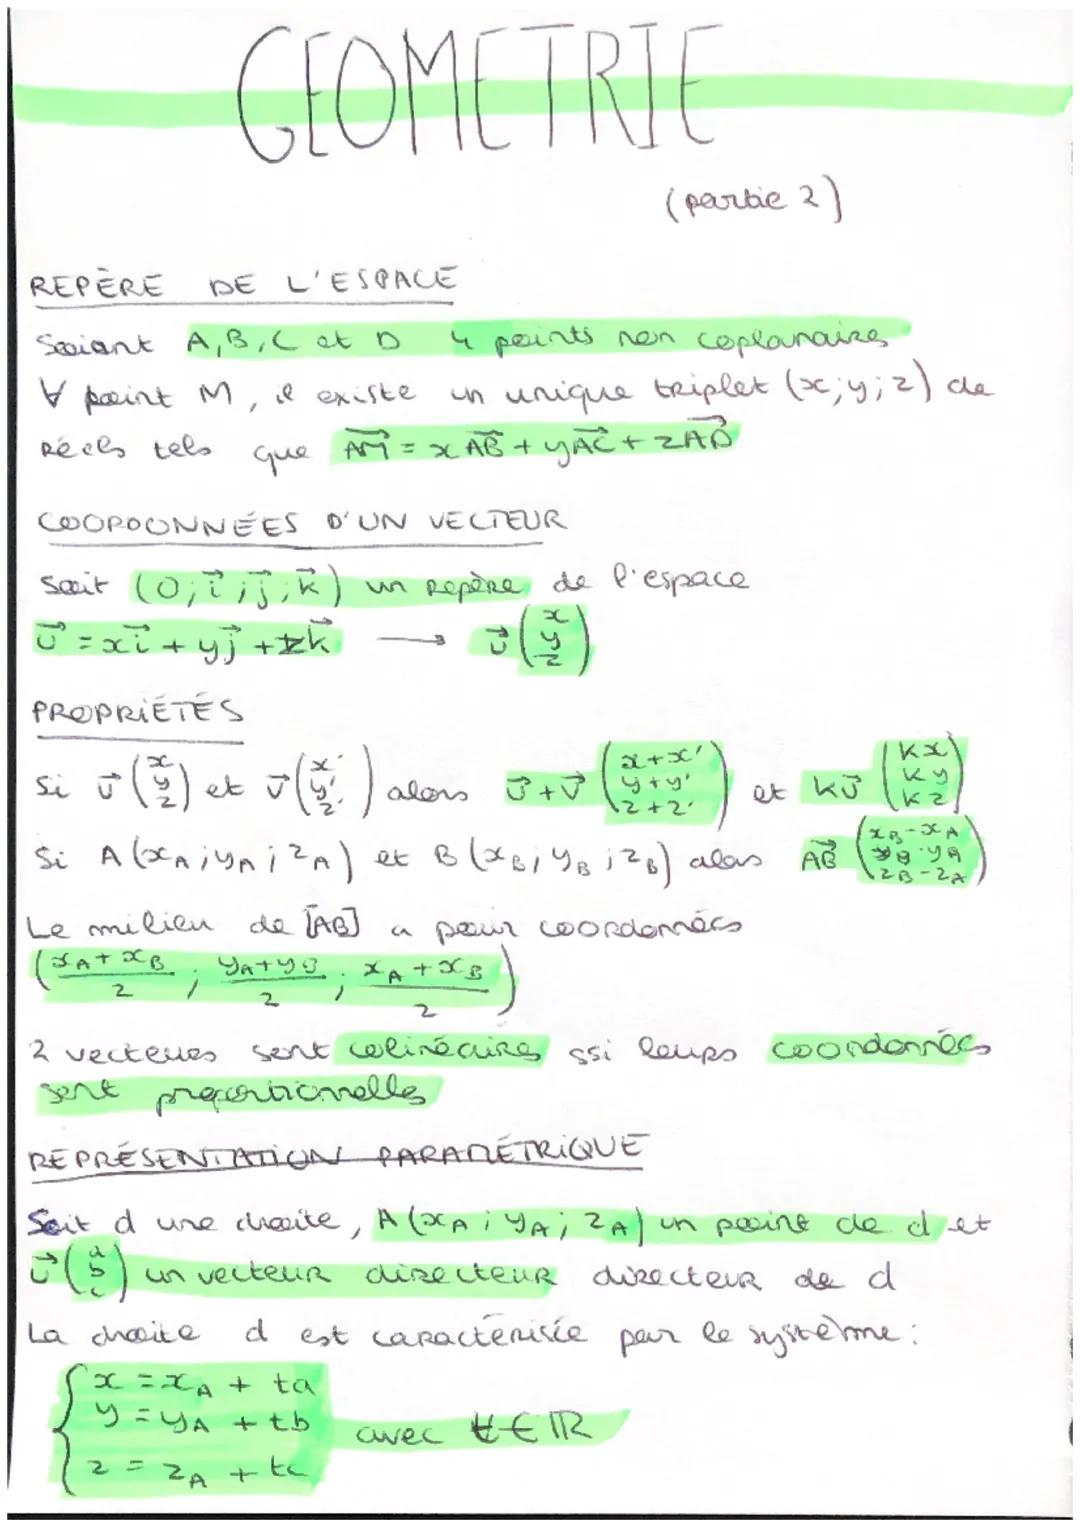 GEOMETRIE
(partie 2)
REPÈRE DE L'ESPACE
Soient A, B, C et D 4 points non coplanaires
∀ point M, il existe un unique triplet (x; y; z) de
réels tels que AM⃗ = xAB⃗ + yAC⃗ + zAD⃗
COORDONNÉES D'UN VECTEUR
Soit (O; i⃗; j⃗; k⃗) un repère de l'espace
u⃗ = xi⃗ + yj⃗ + zk⃗ → u⃗ (x y z)
PROPRIÉTÉS
Si u⃗ (x y z) et v⃗ (x' y' z') alors u⃗ + v⃗ (x+x' y+y' z+z') et ku⃗ (kx ky kz)
Si A (xA; yA; zA) et B (xB; yB; zB) alors AB⃗ (xB-xA yB-yA zB-zA)
Le milieu de [AB] a pour coordonnées
(xA+xB/2 ; yA+yB/2 ; xA+xB/2)
2 vecteurs sont colinéaires ssi leurs coordonnées
sont proportionnelles
REPRÉSENTATION PARAMÉTRIQUE
Soit d une droite, A (xA; yA; zA) un point de d et
u⃗ (a b c) un vecteur directeur directeur de d
La droite d est caractérisée par le système :
{ x = xA + ta
y = yA + tb
z = zA + tc
avec t ∈ ℝ